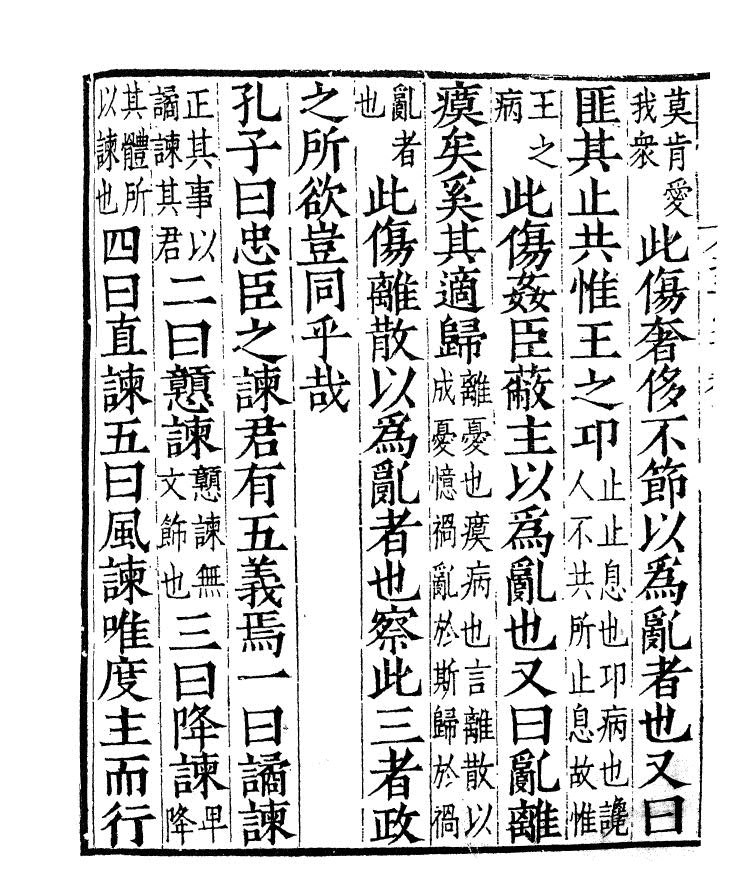 莫肯愛我衆此傷奢侈不節以爲亂者也又曰
匪其止共惟王之卭止止息也卭病也讒人不共所止息故惟
王之病此傷姦臣蔽主以爲亂也又曰亂離
瘼矣奚其適歸離憂也瘼病也言離散以成憂憶禍亂於斯歸於禍
亂者也此傷離散以爲亂者也察此三者政
之所欲豈同乎哉
孔子曰忠臣之諫君有五義焉一曰譎諫
正其事以譎諫其君二曰戇諫戇諫無文飾也三曰降諫卑降
其體所以諫也四曰直諫五曰風諫唯度主而行